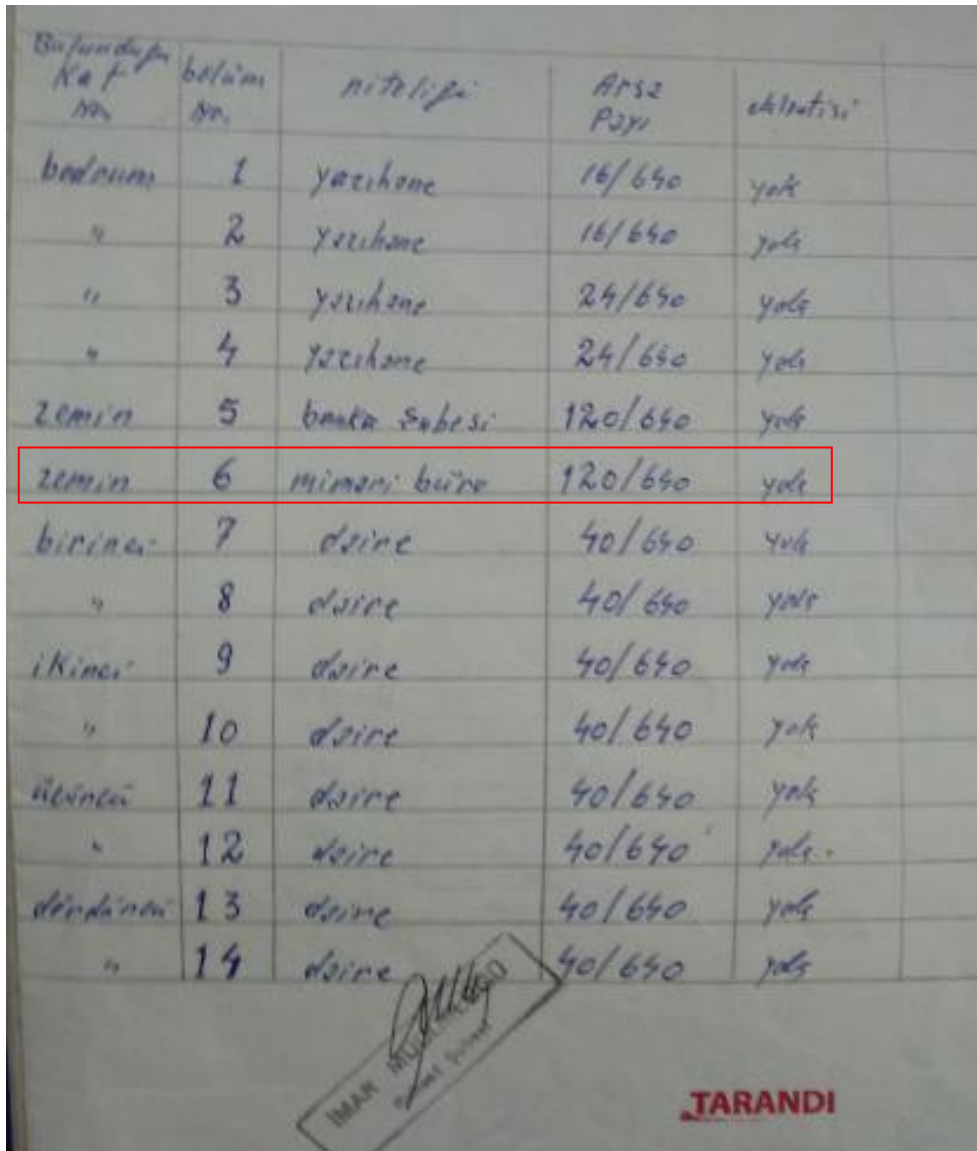 Bulunduğu Kat No. bölüm No. niteliği Arsa Payı eklentisi
bodrum 1 yazıhane 16/640 yok
" 2 yazıhane 16/640 yok
" 3 yazıhane 24/640 yok
" 4 yazıhane 24/640 yok
zemin 5 banka şubesi 120/640 yok
zemin 6 mimari büro 120/640 yok
birinci 7 daire 40/640 yok
" 8 daire 40/640 yok
ikinci 9 daire 40/640 yok
" 10 daire 40/640 yok
üçüncü 11 daire 40/640 yok
" 12 daire 40/640 yok
dördüncü 13 daire 40/640 yok
" 14 daire 40/640 yok
İMAR
TARANDI